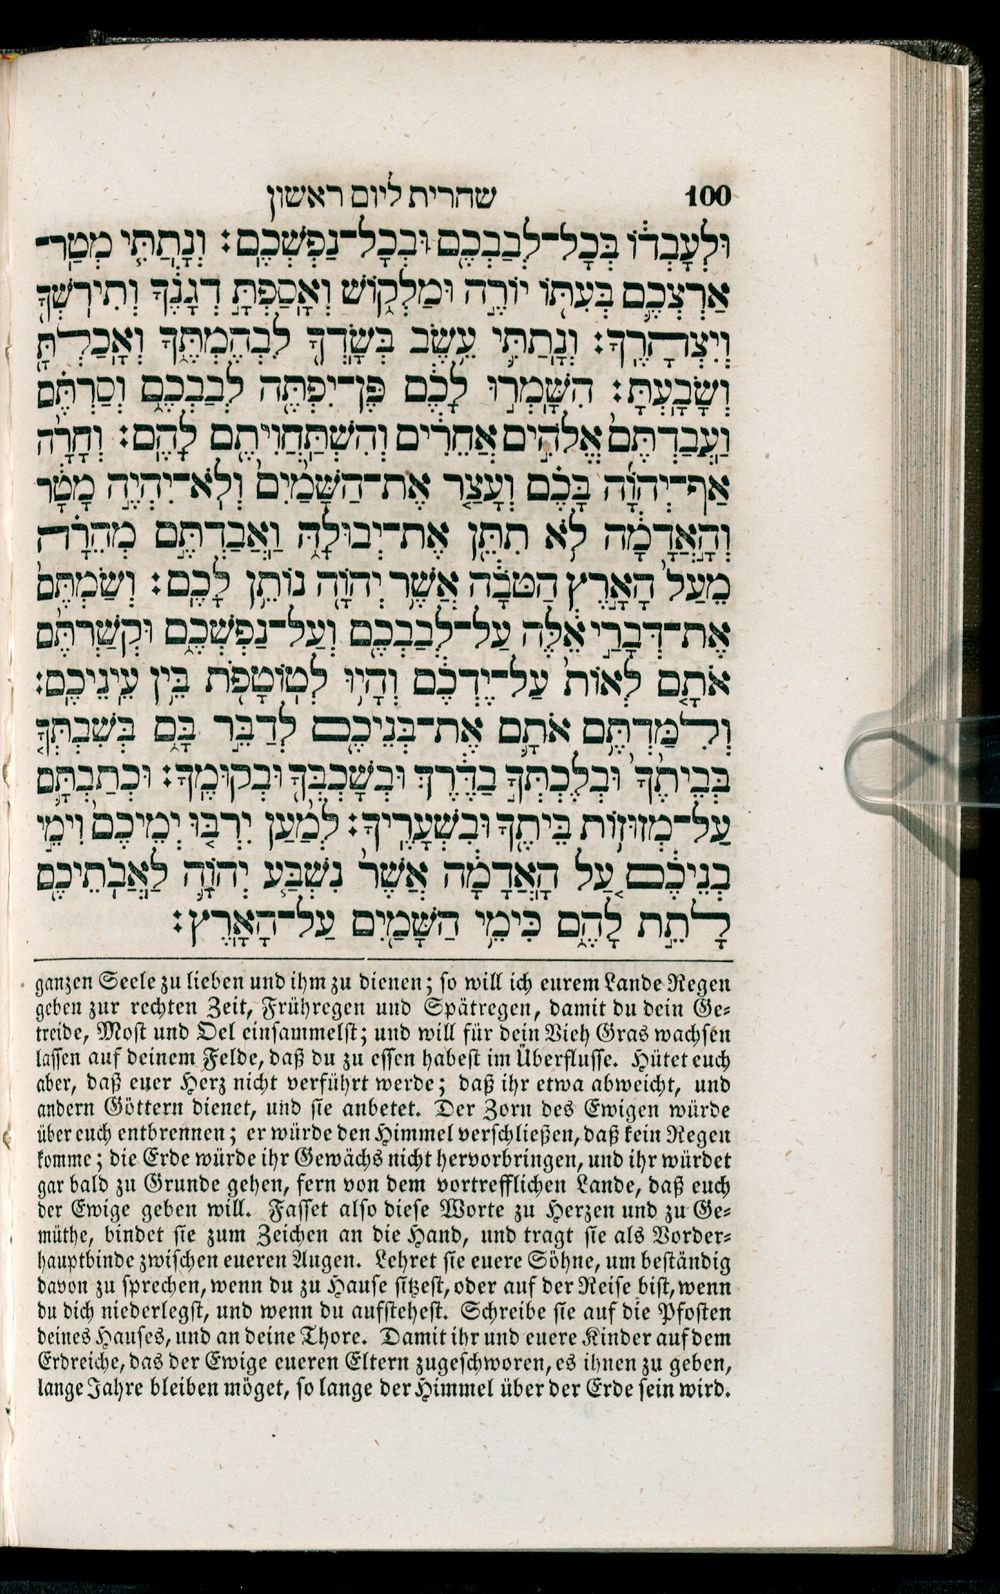 100 שחרית ליום ראשון
וּלְעָבְד֔וֹ בְּכָל־לְבַבְכֶ֖ם וּבְכָל־נַפְשְׁכֶֽם׃ וְנָתַתִּ֧י מְטַֽר־
אַרְצְכֶ֛ם בְּעִתּ֖וֹ יוֹרֶ֣ה וּמַלְק֑וֹשׁ וְאָסַפְתָּ֣ דְגָנֶ֔ךָ וְתִירֽשְׁךָ֖
וְיִצְהָרֶֽךָ׃ וְנָתַתִּ֛י עֵ֥שֶׂב בְּשָׂדְךָ֖ לִבְהֶמְתֶּ֑ךָ וְאָכַלְתָּ֖
וְשָׂבָֽעְתָּ׃ הִשָּֽׁמְר֣וּ לָכֶ֔ם פֶּן־יִפְתֶּ֖ה לְבַבְכֶ֑ם וְסַרְתֶּ֗ם
וַֽעֲבַדְתֶּם֙ אֱלֹהִ֣ים אֲחֵרִ֔ים וְהִשְׁתַּֽחֲוִיתֶ֖ם לָהֶֽם׃ וְחָרָ֨ה
אַף־יְהֹוָ֜ה בָּכֶ֗ם וְעָצַ֤ר אֶת־הַשָּׁמַ֙יִם֙ וְלֹֽא־יִהְיֶ֣ה מָטָ֔ר
וְהָ֣אֲדָמָ֔ה לֹ֥א תִתֵּ֖ן אֶת־יְבוּלָ֑הּ וַֽאֲבַדְתֶּ֣ם מְהֵרָ֗ה
מֵעַל֙ הָאָ֣רֶץ הַטֹּבָ֔ה אֲשֶׁ֥ר יְהֹוָ֖ה נוֹתֵ֥ן לָכֶֽם׃ וְשַׂמְתֶּם֙
אֶת־דְּבָרַ֣י אֵ֔לֶּה עַל־לְבַבְכֶ֖ם וְעַל־נַפְשְׁכֶ֑ם וּקְשַׁרְתֶּ֨ם
אֹתָ֤ם לְאוֹת֙ עַל־יֶדְכֶ֔ם וְהָי֥וּ לְטֽוֹטָפֹ֖ת בֵּ֥ין עֵֽינֵיכֶֽם׃
וְלִמַּדְתֶּ֥ם אֹתָ֛ם אֶת־בְּנֵיכֶ֖ם לְדַבֵּ֣ר בָּ֑ם בְּשִׁבְתְּךָ֤
בְּבֵיתֶ֙ךָ֙ וּבְלֶכְתְּךָ֣ בַדֶּ֔רֶךְ וּֽבְשָׁכְבְּךָ֖ וּבְקוּמֶֽךָ׃ וּכְתַבְתָּ֛ם
עַל־מְזוּז֥וֹת בֵּיתֶ֖ךָ וּבִשְׁעָרֶֽיךָ׃ לְמַ֨עַן יִרְבּ֤וּ יְמֵיכֶם֙ וִימֵ֣י
בְנֵיכֶ֔ם עַ֚ל הָֽאֲדָמָ֔ה אֲשֶׁ֨ר נִשְׁבַּ֧ע יְהֹוָ֛ה לַאֲבֹֽתֵיכֶ֖ם
לָתֵ֣ת לָהֶ֑ם כִּימֵ֥י הַשָּׁמַ֖יִם עַל־הָאָֽרֶץ׃
ganzen Seele zu lieben und ihm zu dienen; so will ich eurem Lande Regen
geben zur rechten Zeit, Frühregen und Spätregen, damit du dein Ge-
treide, Most und Oel einsammelst; und will für dein Vieh Gras wachsen
lassen auf deinem Felde, daß du zu essen habest im Überflusse. Hütet euch
aber, daß euer Herz nicht verführt werde; daß ihr etwa abweicht, und
andern Göttern dienet, und sie anbetet. Der Zorn des Ewigen würde
über euch entbrennen; er würde den Himmel verschließen, daß kein Regen
komme; die Erde würde ihr Gewächs nicht hervorbringen, und ihr würdet
gar bald zu Grunde gehen, fern von dem vortrefflichen Lande, daß euch
der Ewige geben will. Fasset also diese Worte zu Herzen und zu Ge-
müthe, bindet sie zum Zeichen an die Hand, und tragt sie als Vorder-
hauptbinde zwischen eueren Augen. Lehret sie euere Söhne, um beständig
davon zu sprechen, wenn du zu Hause sitzest, oder auf der Reise bist, wenn
du dich niederlegst, und wenn du aufstehest. Schreibe sie auf die Pfosten
deines Hauses, und an deine Thore. Damit ihr und euere Kinder auf dem
Erdreiche, das der Ewige eueren Eltern zugeschworen, es ihnen zu geben,
lange Jahre bleiben möget, so lange der Himmel über der Erde sein wird.